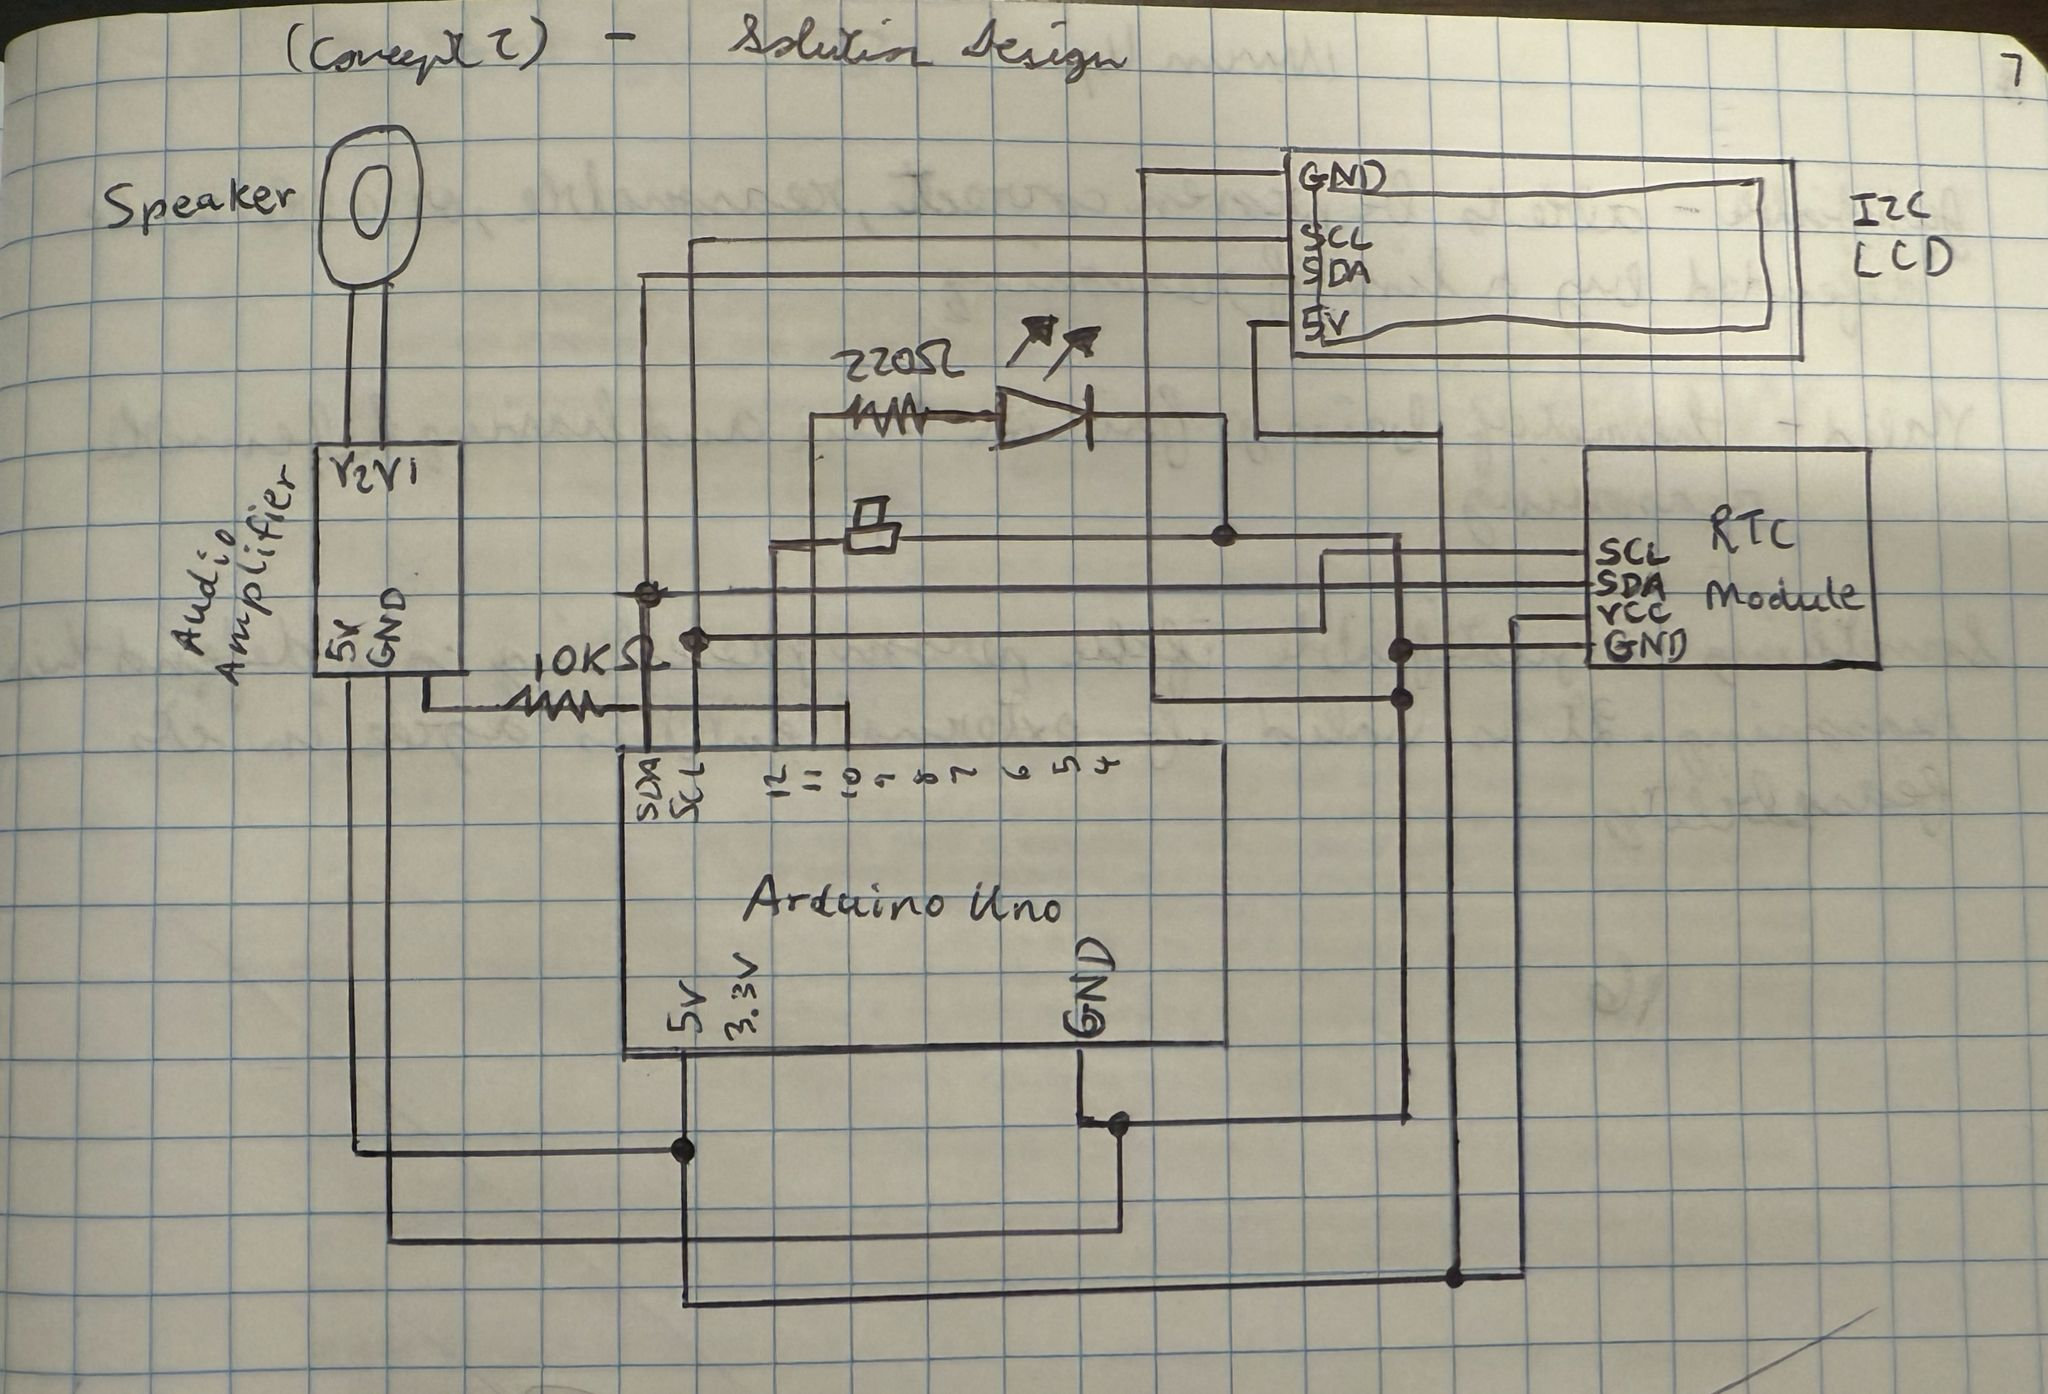 (Concept 2) - Solution Design
7
Speaker
GND
SCL
SDA
5V
I2C
LCD
220Ω
V2 V1
Audio
Amplifier
5V
GND
10KΩ
RTC
Module
SCL
SDA
VCC
GND
SDA
SCL
12
11
10
9
8
7
6
5
4
Arduino Uno
5V
3.3V
GND